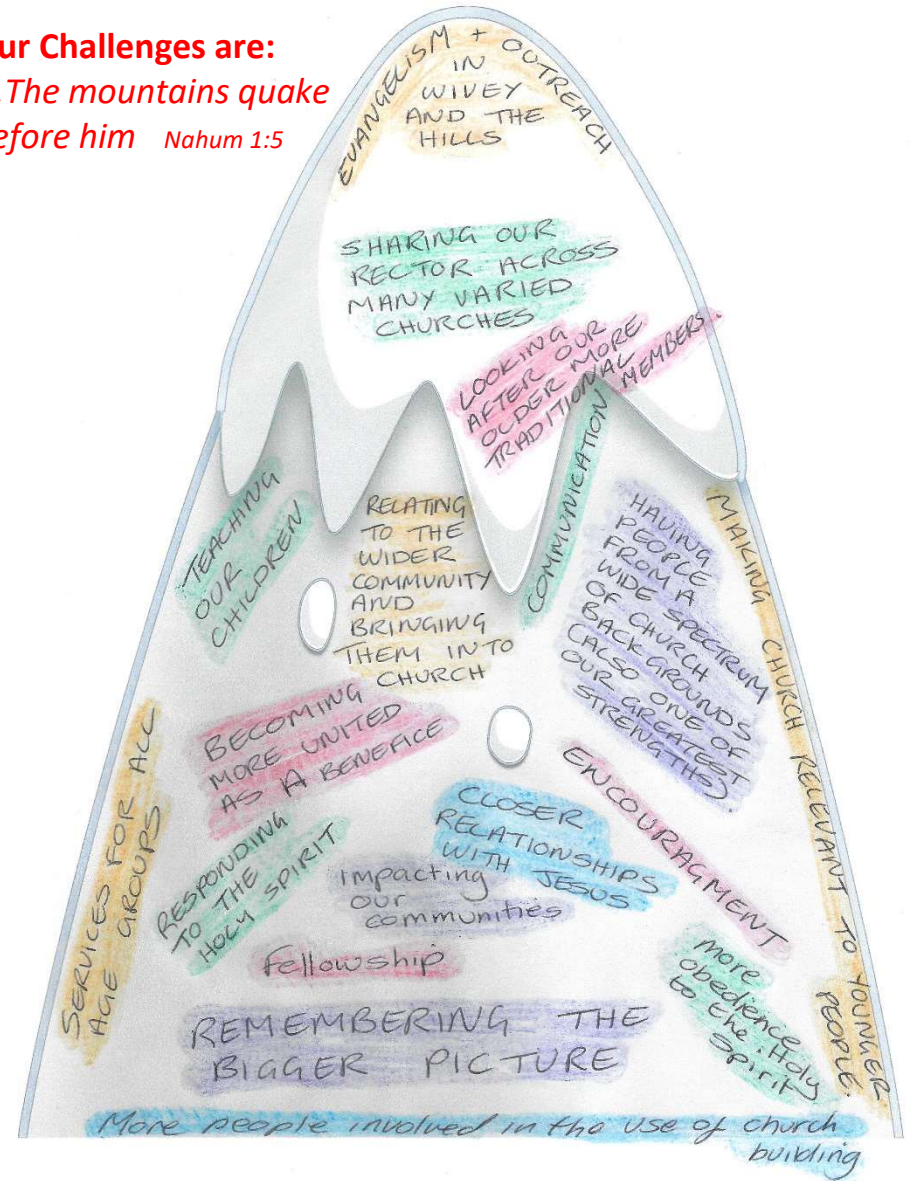 ur Challenges are:
.The mountains quake
efore him Nahum 1:5
EVANGELISM + OUTREACH
IN
WIVEY
AND THE
HILLS
SHARING OUR
RECTOR ACROSS
MANY VARIED
CHURCHES
LOOKING
AFTER OUR
OLDER MORE
TRADITIONAL MEMBERS.
COMMUNICATION
TEACHING
OUR
CHILDREN
RELATING
TO THE
WIDER
COMMUNITY
AND
BRINGING
THEM INTO
CHURCH
HAVING
PEOPLE
FROM A
WIDE SPECTRUM
OF CHURCH
BACKGROUNDS
(ALSO ONE OF
OUR GREATEST
STRENGTHS)
MAKING CHURCH RELEVANT TO YOUNGER
PEOPLE.
BECOMING
MORE UNITED
AS A BENEFICE
SERVICES FOR ALL
AGE GROUPS
RESPONDING
TO THE
HOLY SPIRIT
CLOSER
RELATIONSHIPS
WITH JESUS
ENCOURAGMENT
impacting
our
communities
Fellowship
more
obedience
to the Holy
Spirit
REMEMBERING THE
BIGGER PICTURE
More people involved in the use of church
building